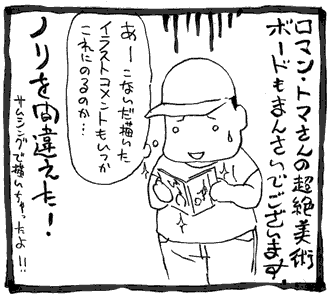 ロマン・トマさんの超絶美術
ボードもまんさいでございます。
あーこないだ描いた
イラストコメントもいつか
これにのるのか…
ノリを間違えた!
サムシングで描いちゃったよ!!